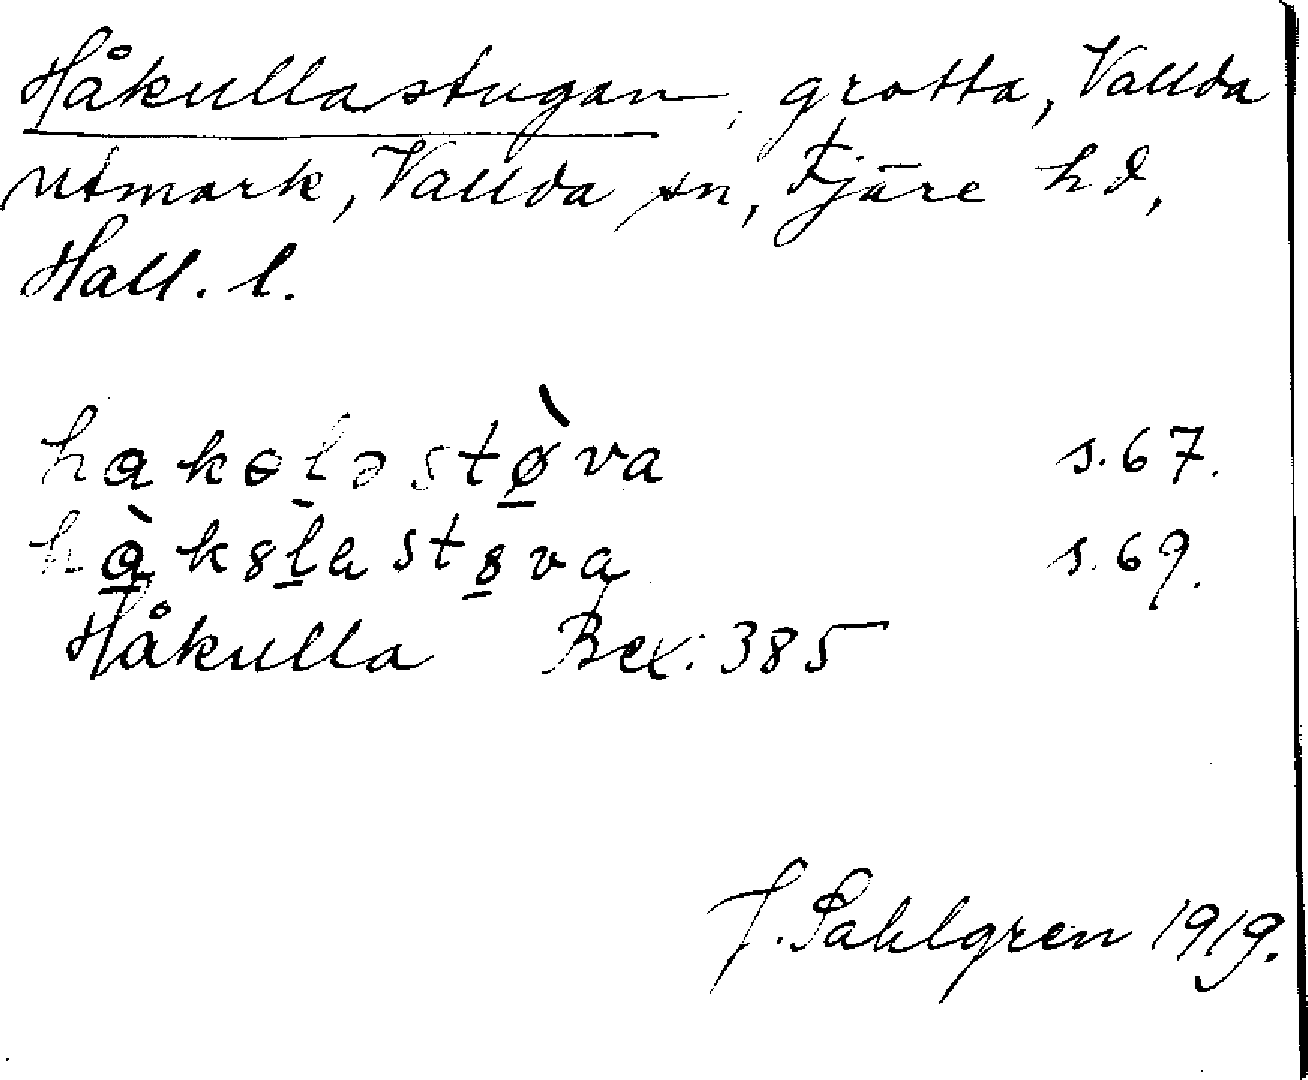 Håkullastugan, grotta, Vallda
utmark, Vallda sn, Fjäre hd,
Hall. l.
hakoləstø̀va s.67.
hàk8la st8va s.69.
Håkulla Bex: 385
J. Sahlgren 1919.